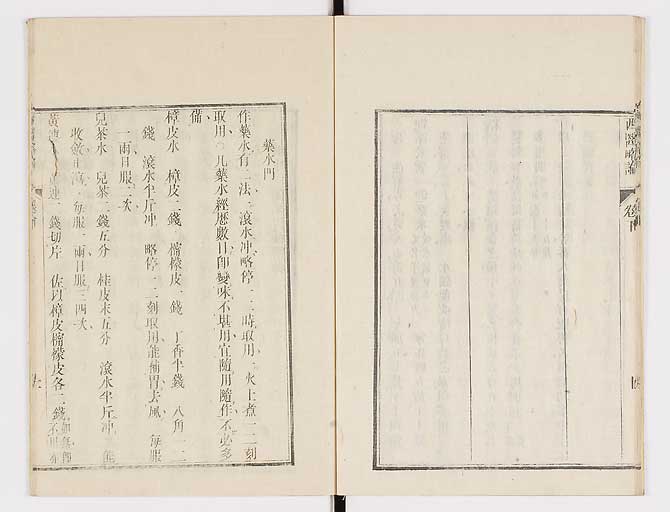 西醫略論
卷下
藥水門
作藥水有二法、滾水冲、略停一二時取用、火上煮一二刻
取用、凡藥水經歷數日、卽變味不堪用、宜隨用隨作、不必多
備
樟皮水 樟皮二錢 檸檬皮一錢 丁香半錢 八角一二
錢 滾水半斤冲 略停一二刻取用、能補胃去風、每服
一兩、日服二次
兒茶水 兒茶二錢五分 桂皮末五分 滾水半斤冲
收斂止瀉、每服一兩、日服三四次
黃連 連一錢切片 佐以樟皮檸檬皮各二錢